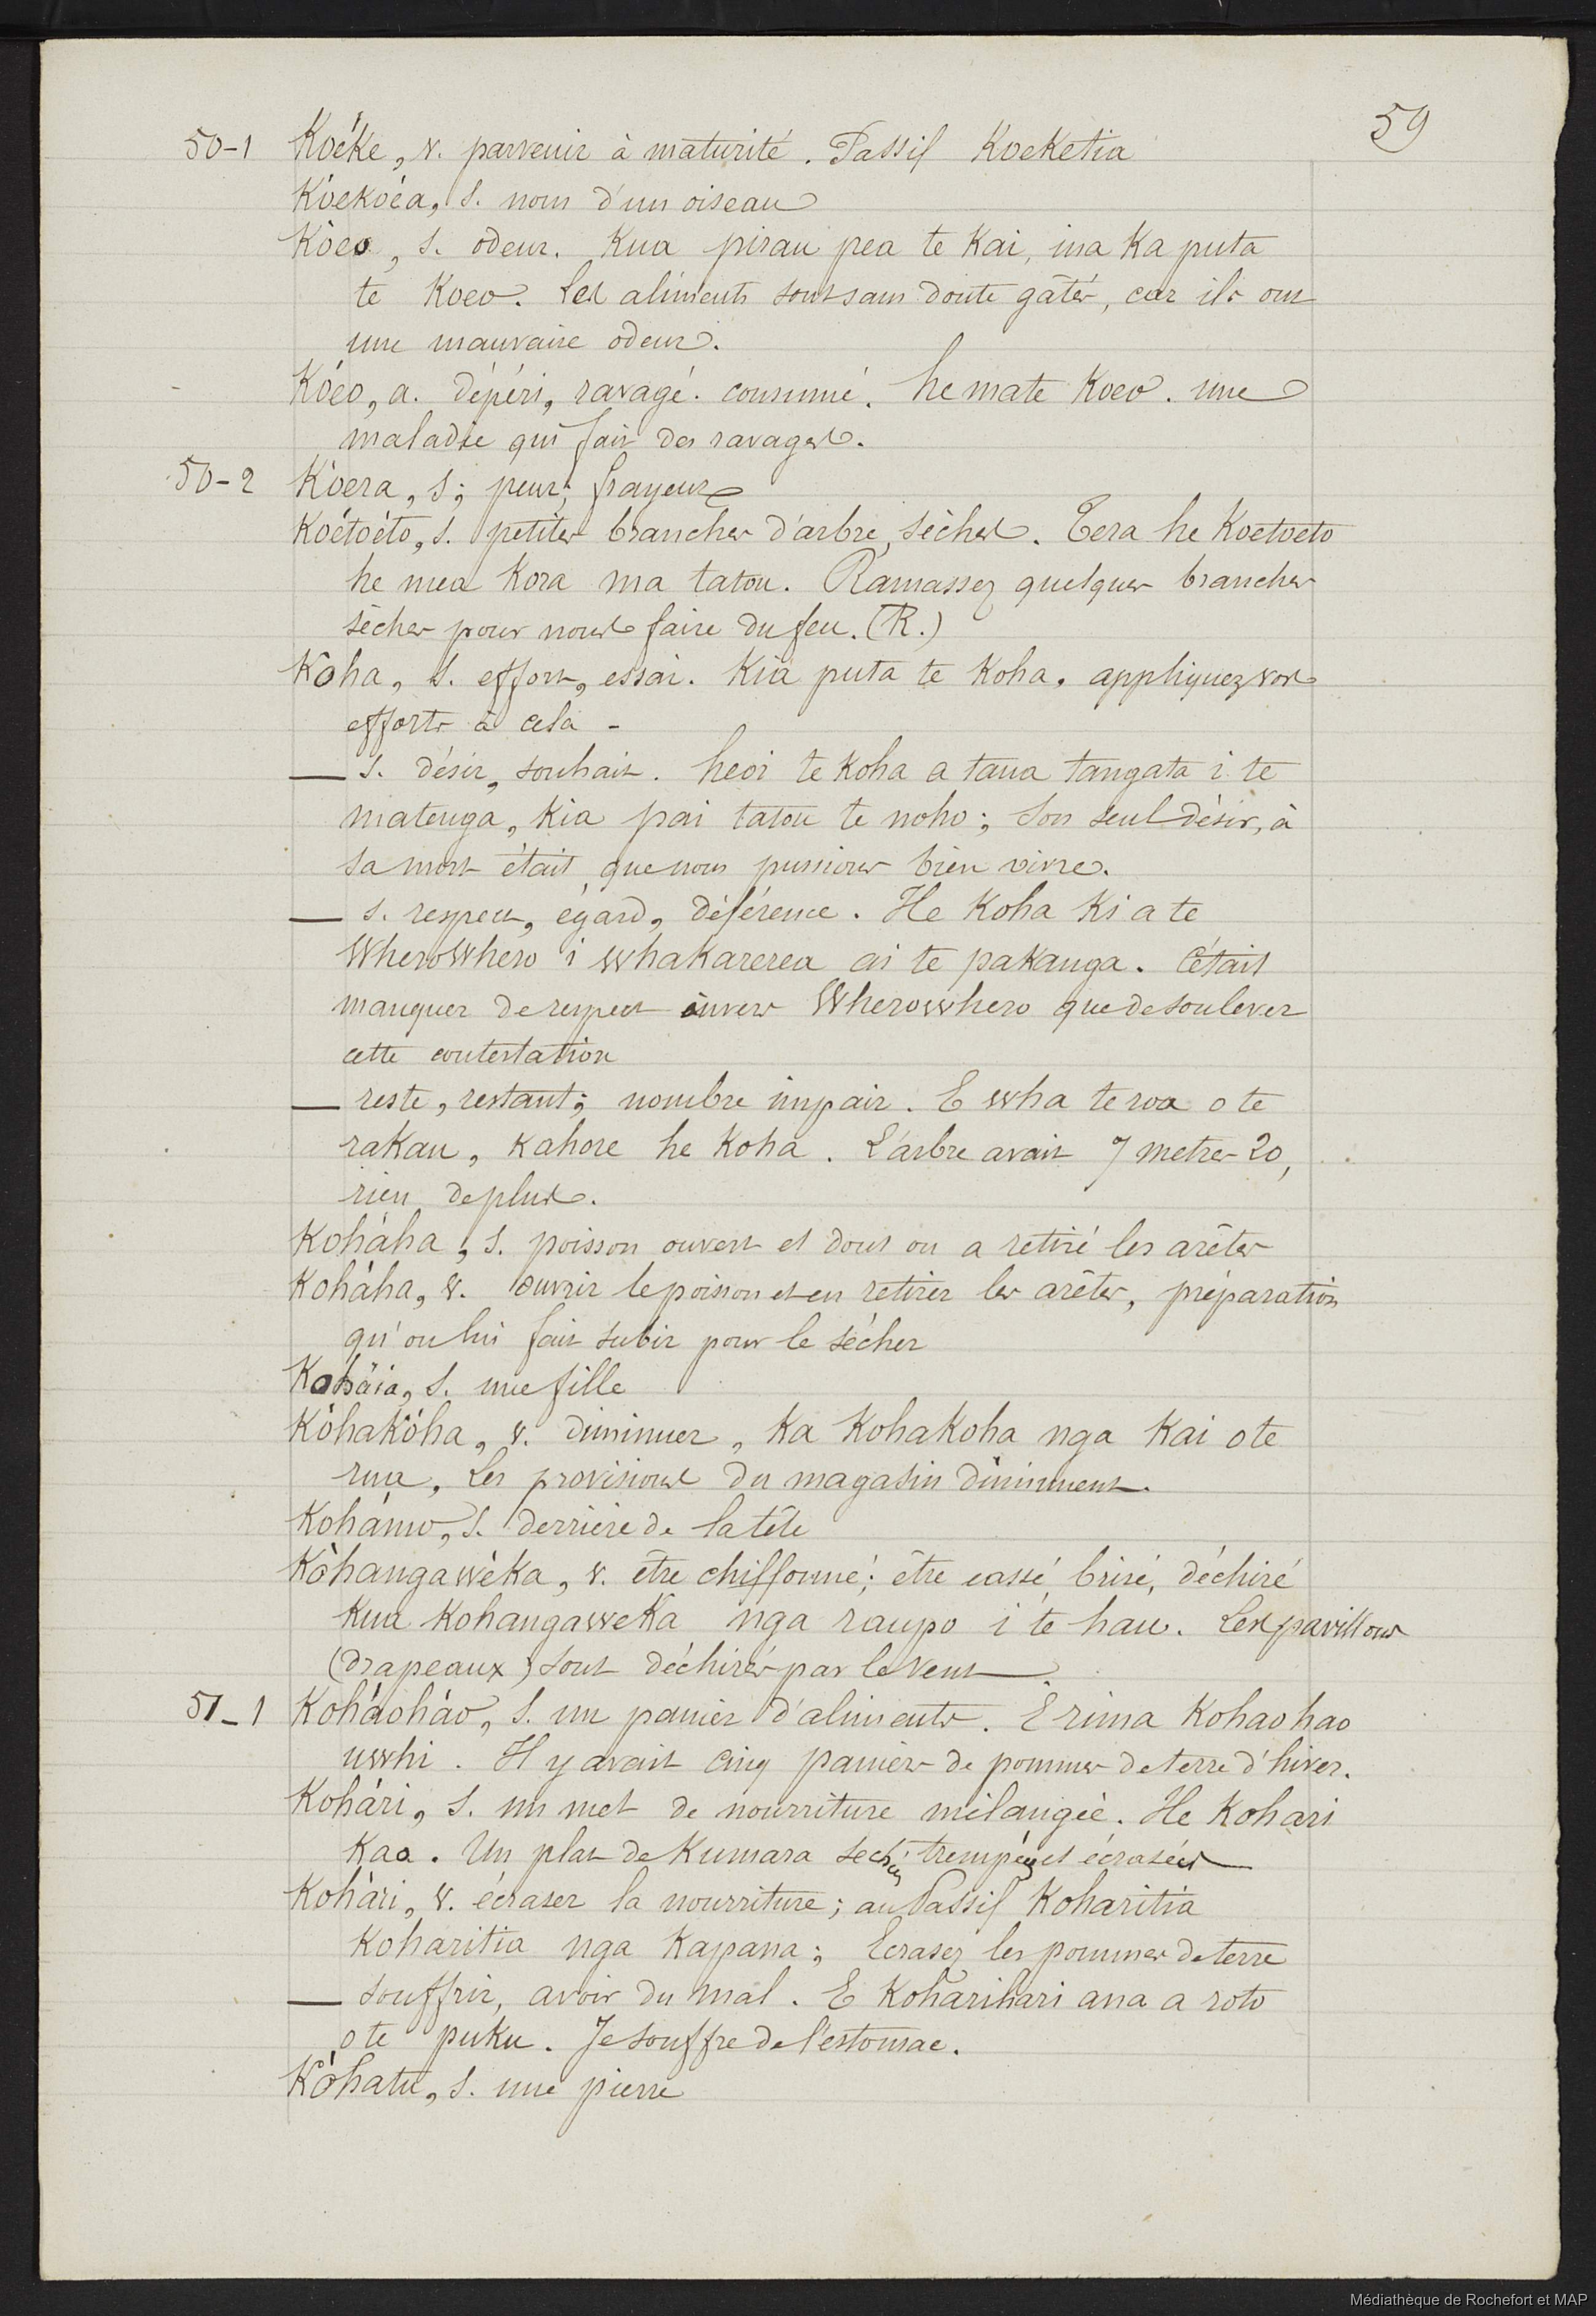 59
50-1 Koéke, v. parvenir à maturité. Passif Koeketia
Kóekoéa, s. nom d'un oiseau
Kòeo, s. odeur. Kua pirau pea te Kai, ina Ka puta
te Koeo. Les aliments sont sans doute gâtés, car ils ont
une mauvaise odeur.
Kóeo, a. dépéri, ravagé. consumé. he mate Koeo. une
maladie qui fait des ravages.
50-2 Kòera, s; peur; frayeur
Koétoéto, s. petites branches d'arbre, sèches. Tera he Koetoeto
he mea Kora ma tatou. Ramassez quelques branches
sèches pour nous faire du feu. (R.)
Kôha, s. effort, essai. Kia puta te Koha, appliquez vos
efforts à cela -
— s. désir, souhait. heoi te Koha a taua tangata i te
matenga, Kia pai tatou te noho; Son seul désir, à
sa mort était, que nous pussions bien vivre.
— s. respect, égard, déférence. He Koha Ki a te
Wherowhero i whakarerea ai te pakanga. C'était
manquer de respect envers Wherowhero que de soulever
cette contestation
— reste, restant; nombre impair. E wha te roa o te
rakau, Kahore he Koha. L'arbre avait 7 metres 20,
rien de plus.
Koháha, s. poisson ouvert et dont on a retiré les arêtes
Koháha, v. ouvrir le poisson et en retirer les arêtes, préparation
qu'on lui fait subir pour le sécher
Koháia, s. une fille
KóhaKóha, v. diminuer, Ka KohaKoha nga Kai o te
rua, Les provisions du magasin diminuent.
Kohámo, s. derrière de la tête
Kòhangawèka, v. être chiffonné; être cassé, brisé, déchiré
Kua Kohangaweka nga raupo i te hau. Les pavillons
(drapeaux) sont déchirés par le vent.
51-1 Koháoháo, s. un panier d'aliments. E rima Kohaohao
uwhi. Il y avait cinq paniers de pommes de terre d'hiver.
Kohári, s. un met de nourriture mélangée. He Kohari
Kao. Un plat de Kumara sechées trempées et écrasées
Kohári, v. écraser la nourriture; au Passif Koharitia
Koharitia nga Kapana; Ecrasez les pommes de terre
— souffrir, avoir du mal. E Koharihari ana a roto
o te puku. Je souffre de l'estomac.
Kòhatu, s. une pierre
Médiathèque de Rochefort et MAP